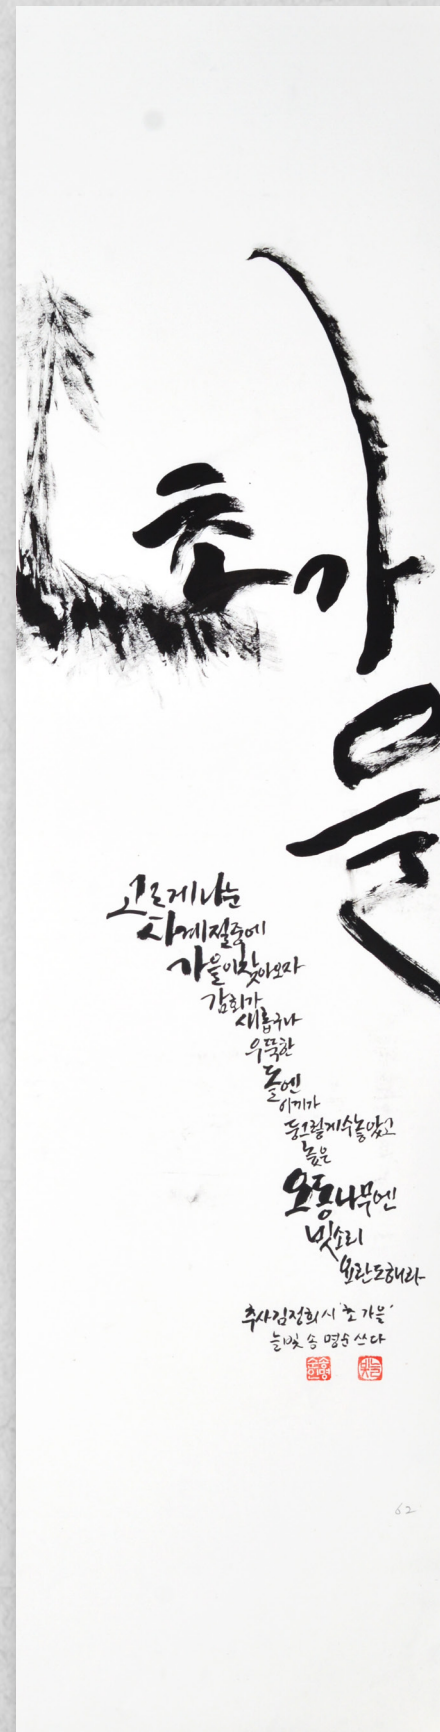 초가
을
고르게 나눈
사계절중에
가을이 찾아오자
감회가
새롭구나
우뚝한
돌엔
이끼가
둥그렇게 수놓았고
높은
오동나무엔
빗소리
요란도해라
추사 김정희 시 '초가을'
늘빛 송명순 쓰다
62